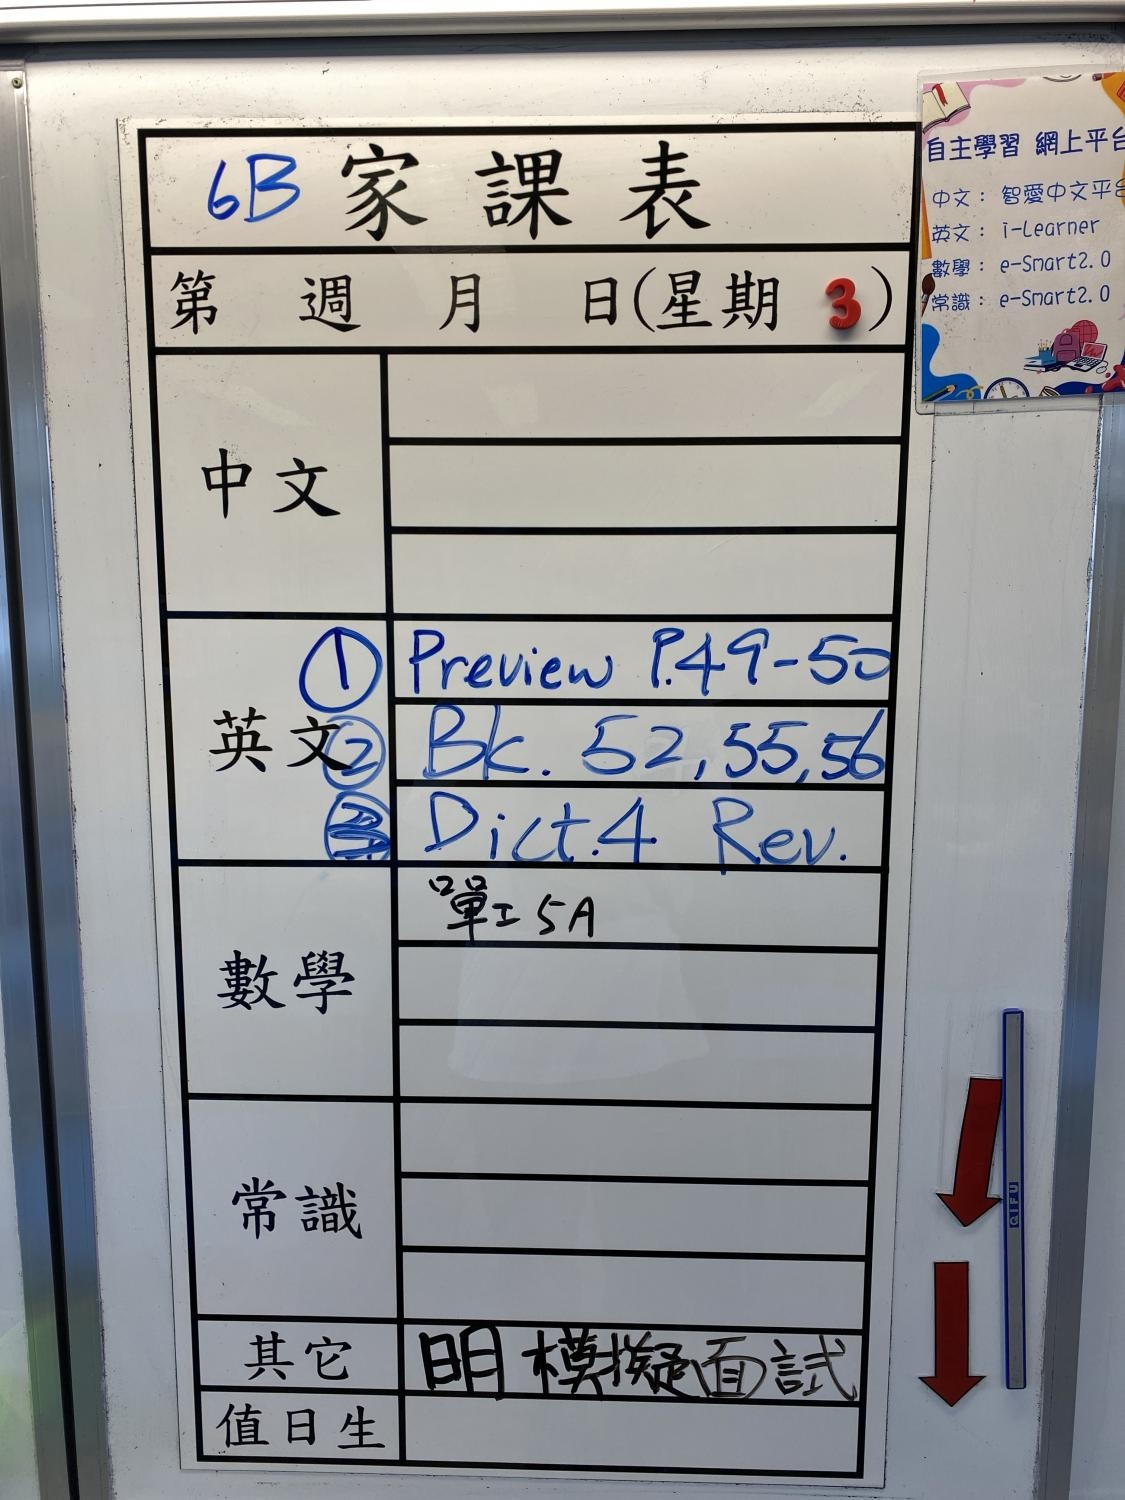 6B 家課表
第 週 月 日(星期 3)
中文
英文
① Preview P.49-50
② Bk. 52, 55, 56
③ Dict.4 Rev.
數學
單工5A
常識
其它
明模擬面試
值日生
自主學習 網上平台
中文：智愛中文平台
英文：i-Learner
數學：e-Smart2.0
常識：e-Smart2.0
QIFU